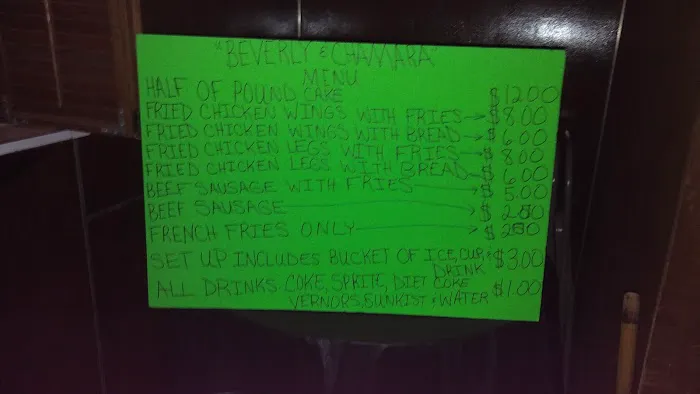 "BEVERLY & CHAMARA"
MENU
HALF OF POUND CAKE $12.00
FRIED CHICKEN WINGS WITH FRIES → $8.00
FRIED CHICKEN WINGS WITH BREAD → $6.00
FRIED CHICKEN LEGS WITH FRIES → $8.00
FRIED CHICKEN LEGS WITH BREAD → $6.00
BEEF SAUSAGE WITH FRIES → $5.00
BEEF SAUSAGE → $2.50
FRENCH FRIES ONLY → $2.50
SET UP INCLUDES BUCKET OF ICE, CUP, & $3.00
DRINK
ALL DRINKS. COKE, SPRITE, DIET COKE $1.00
VERNORS, SUNKIST & WATER